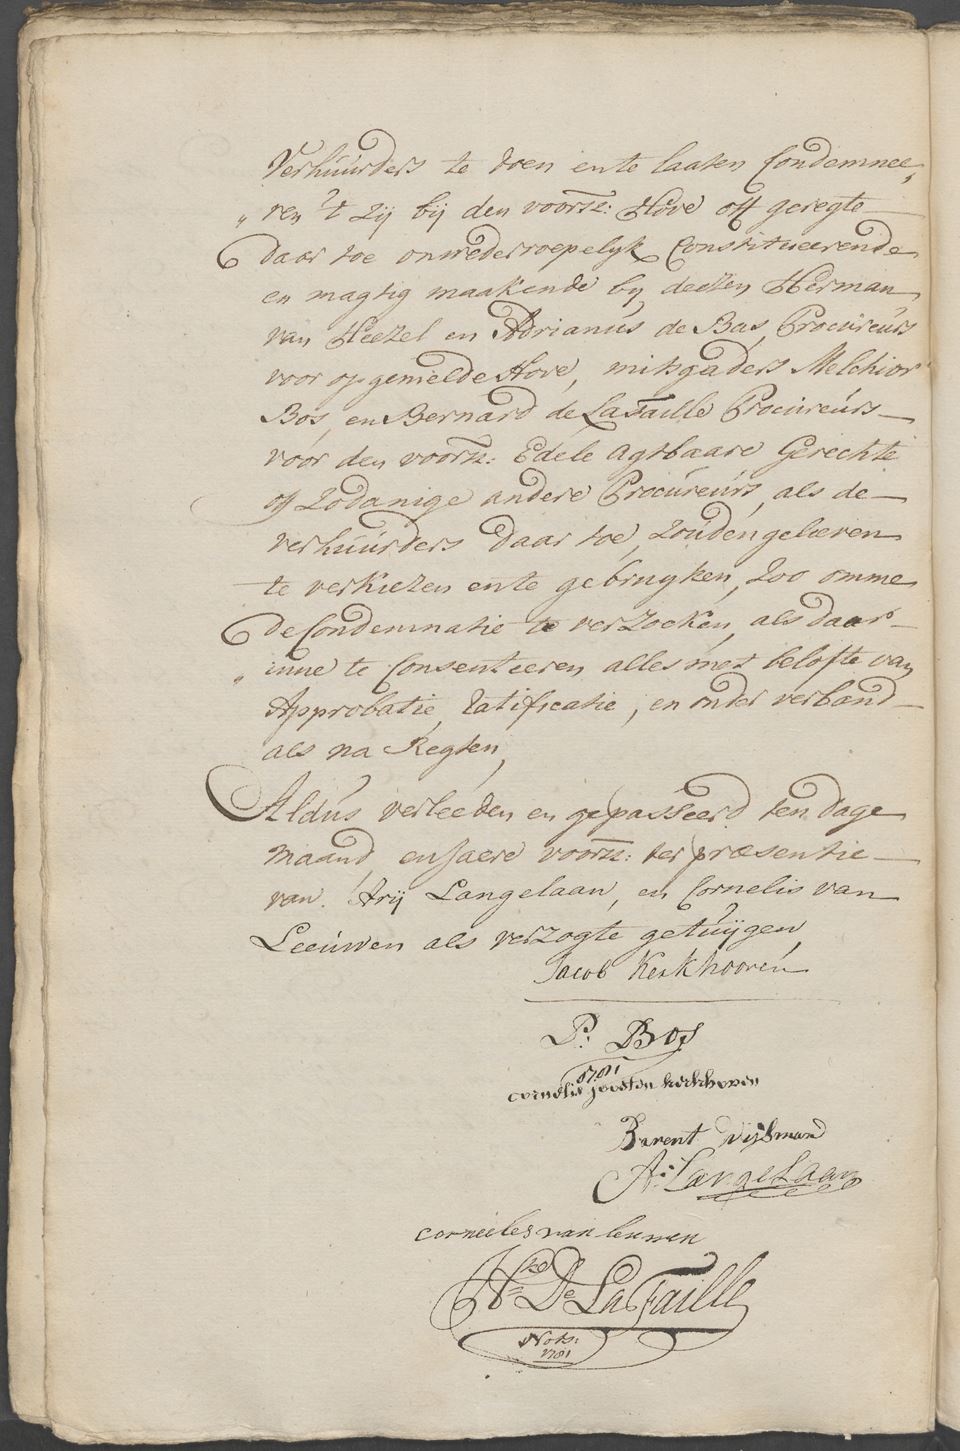 Verhuurders te doen ente laaten Condemnee„
„ren 't zij bij den voorsz: Hove off geregte
daar toe onwederroepelijk Constitueerende
en magtig maakende by deezen Herman
van Heezel en Adrianus de Bas, Procureurs
voor opgemelde Hove, mitsgaders Melchior
Bos, en Bernard de LaFaille Procureurs
voor den voorsz: Edele Agtbaare Gerechte
of Zodanige andere Procureurs, als de
verhuurders daar toe, zouden gelieven
te verkiezen ente gebruyken, zoo omme
de Condemnatie te verzoeken, als daar
„inne te Consenteeren alles met belofte van
Approbatie, ratificatie, en onder verband
als na Regten,
Aldus verleeden en gepasseerd ten dage
maand, en Jaere voorsz: ter præsentie
van Arij Langelaan, en Cornelis van
Leeuwen als verzogte getuijgen,
Jacob Kerkhooven
P: Bos
1781
cornelis joosten kerkhoven
Barent Dijkman
A: Langelaan
corneeles van leuwen
De LaFaille
Nots:
1781